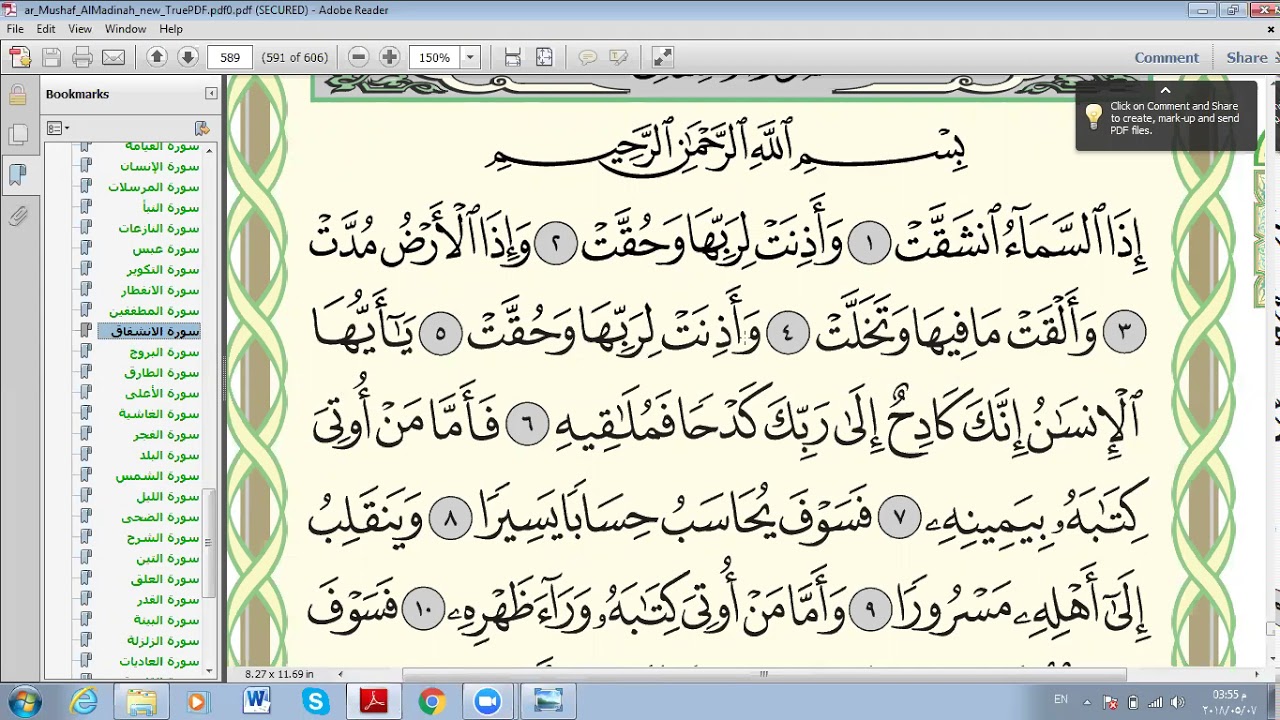 ar_Mushaf_AlMadinah_new_TruePDF.pdf0.pdf (SECURED) - Adobe Reader
File Edit View Window Help
589 (591 of 606) 150% Comment Share
Bookmarks
Click on Comment and Share
to create, mark-up and send
PDF files.
سورة القيامة
سورة الإنسان
سورة المرسلات
سورة النبأ
سورة النازعات
سورة عبس
سورة التكوير
سورة الانفطار
سورة المطففين
سورة الانشقاق
سورة البروج
سورة الطارق
سورة الأعلى
سورة الغاشية
سورة الفجر
سورة البلد
سورة الشمس
سورة الليل
سورة الضحى
سورة الشرح
سورة التين
سورة العلق
سورة القدر
سورة البينة
سورة الزلزلة
سورة العاديات
بِسْمِ ٱللَّهِ ٱلرَّحْمَٰنِ ٱلرَّحِيمِ
إِذَا ٱلسَّمَآءُ ٱنشَقَّتْ ١ وَأَذِنَتْ لِرَبِّهَا وَحُقَّتْ ٢ وَإِذَا ٱلْأَرْضُ مُدَّتْ
٣ وَأَلْقَتْ مَا فِيهَا وَتَخَلَّتْ ٤ وَأَذِنَتْ لِرَبِّهَا وَحُقَّتْ ٥ يَٰٓأَيُّهَا
ٱلْإِنسَٰنُ إِنَّكَ كَادِحٌ إِلَىٰ رَبِّكَ كَدْحًا فَمُلَٰقِيهِ ٦ فَأَمَّا مَنْ أُوتِىَ
كِتَٰبَهُۥ بِيَمِينِهِۦ ٧ فَسَوْفَ يُحَاسَبُ حِسَابًا يَسِيرًا ٨ وَيَنقَلِبُ
إِلَىٰٓ أَهْلِهِۦ مَسْرُورًا ٩ وَأَمَّا مَنْ أُوتِىَ كِتَٰبَهُۥ وَرَآءَ ظَهْرِهِۦ ١٠ فَسَوْفَ
8.27 x 11.69 in
EN 03:55 م
٢٠١٨/٠٥/٠٧